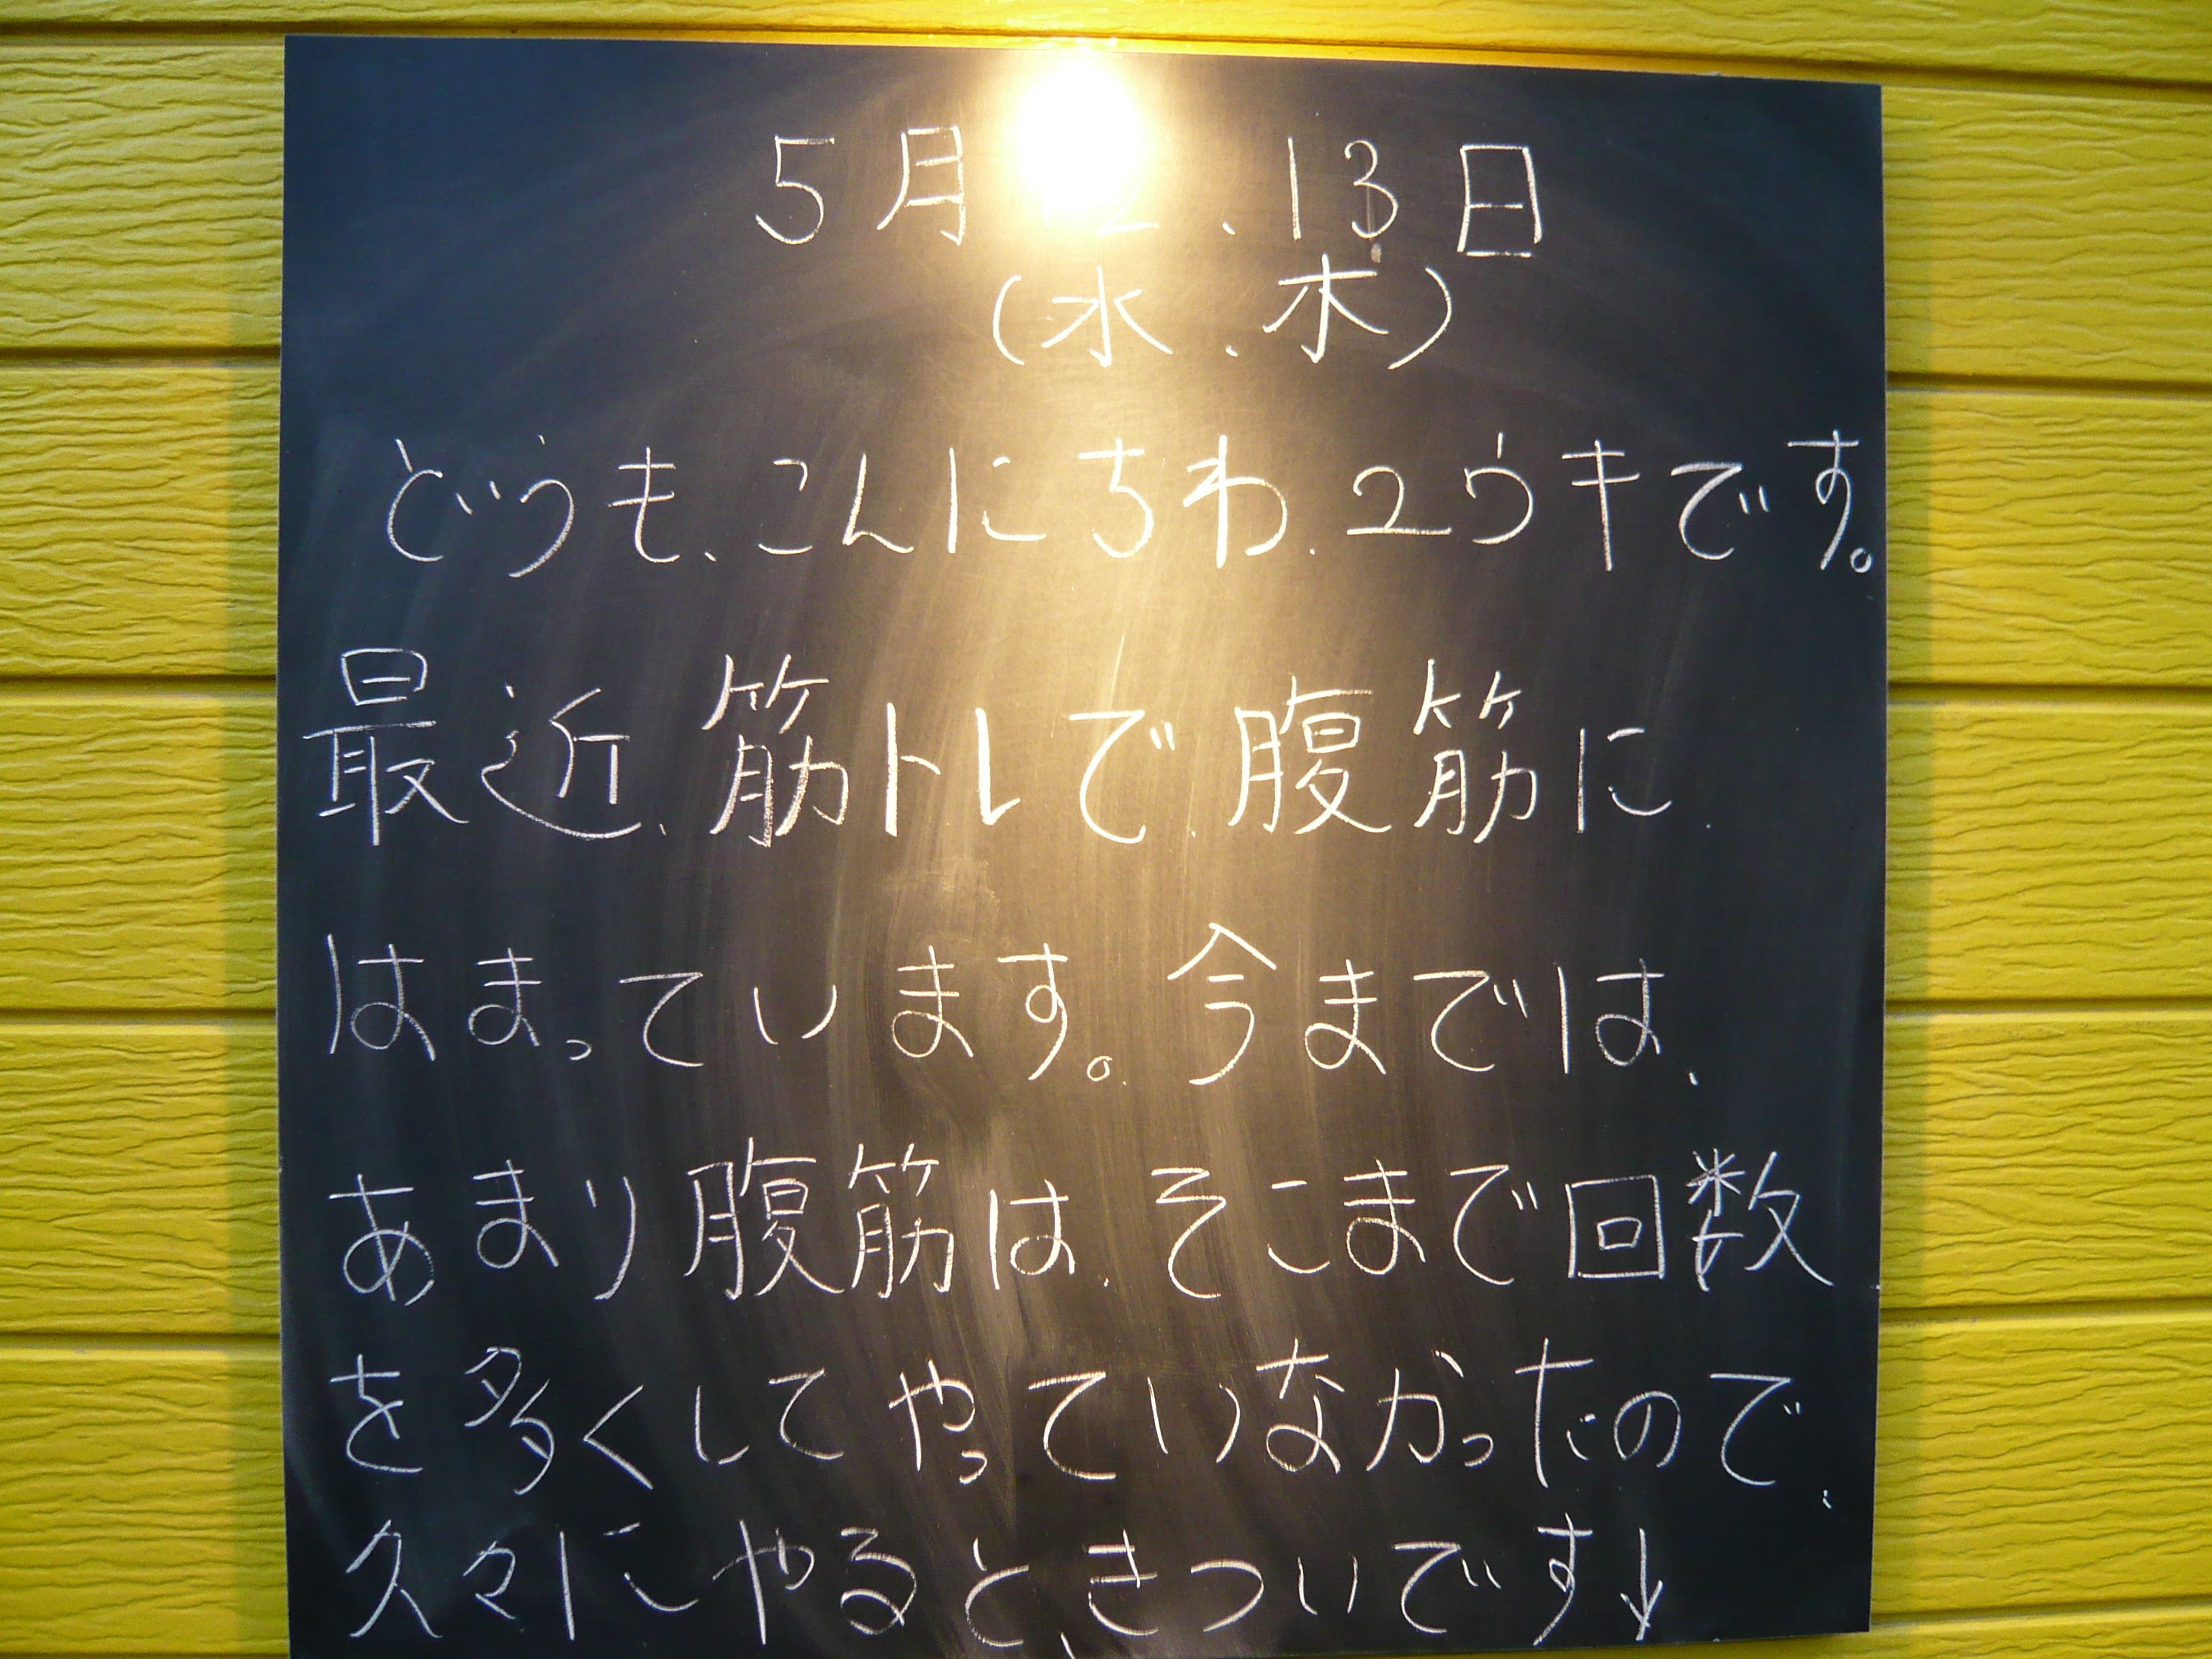 5月12、13日
(水、木)
どうも、こんにちわ、ユウキです。
最近、筋トレで、腹筋に
はまっています。今までは、
あまり腹筋は、そこまで回数
を多くしてやっていなかったので、
久々にやると、きついです↓